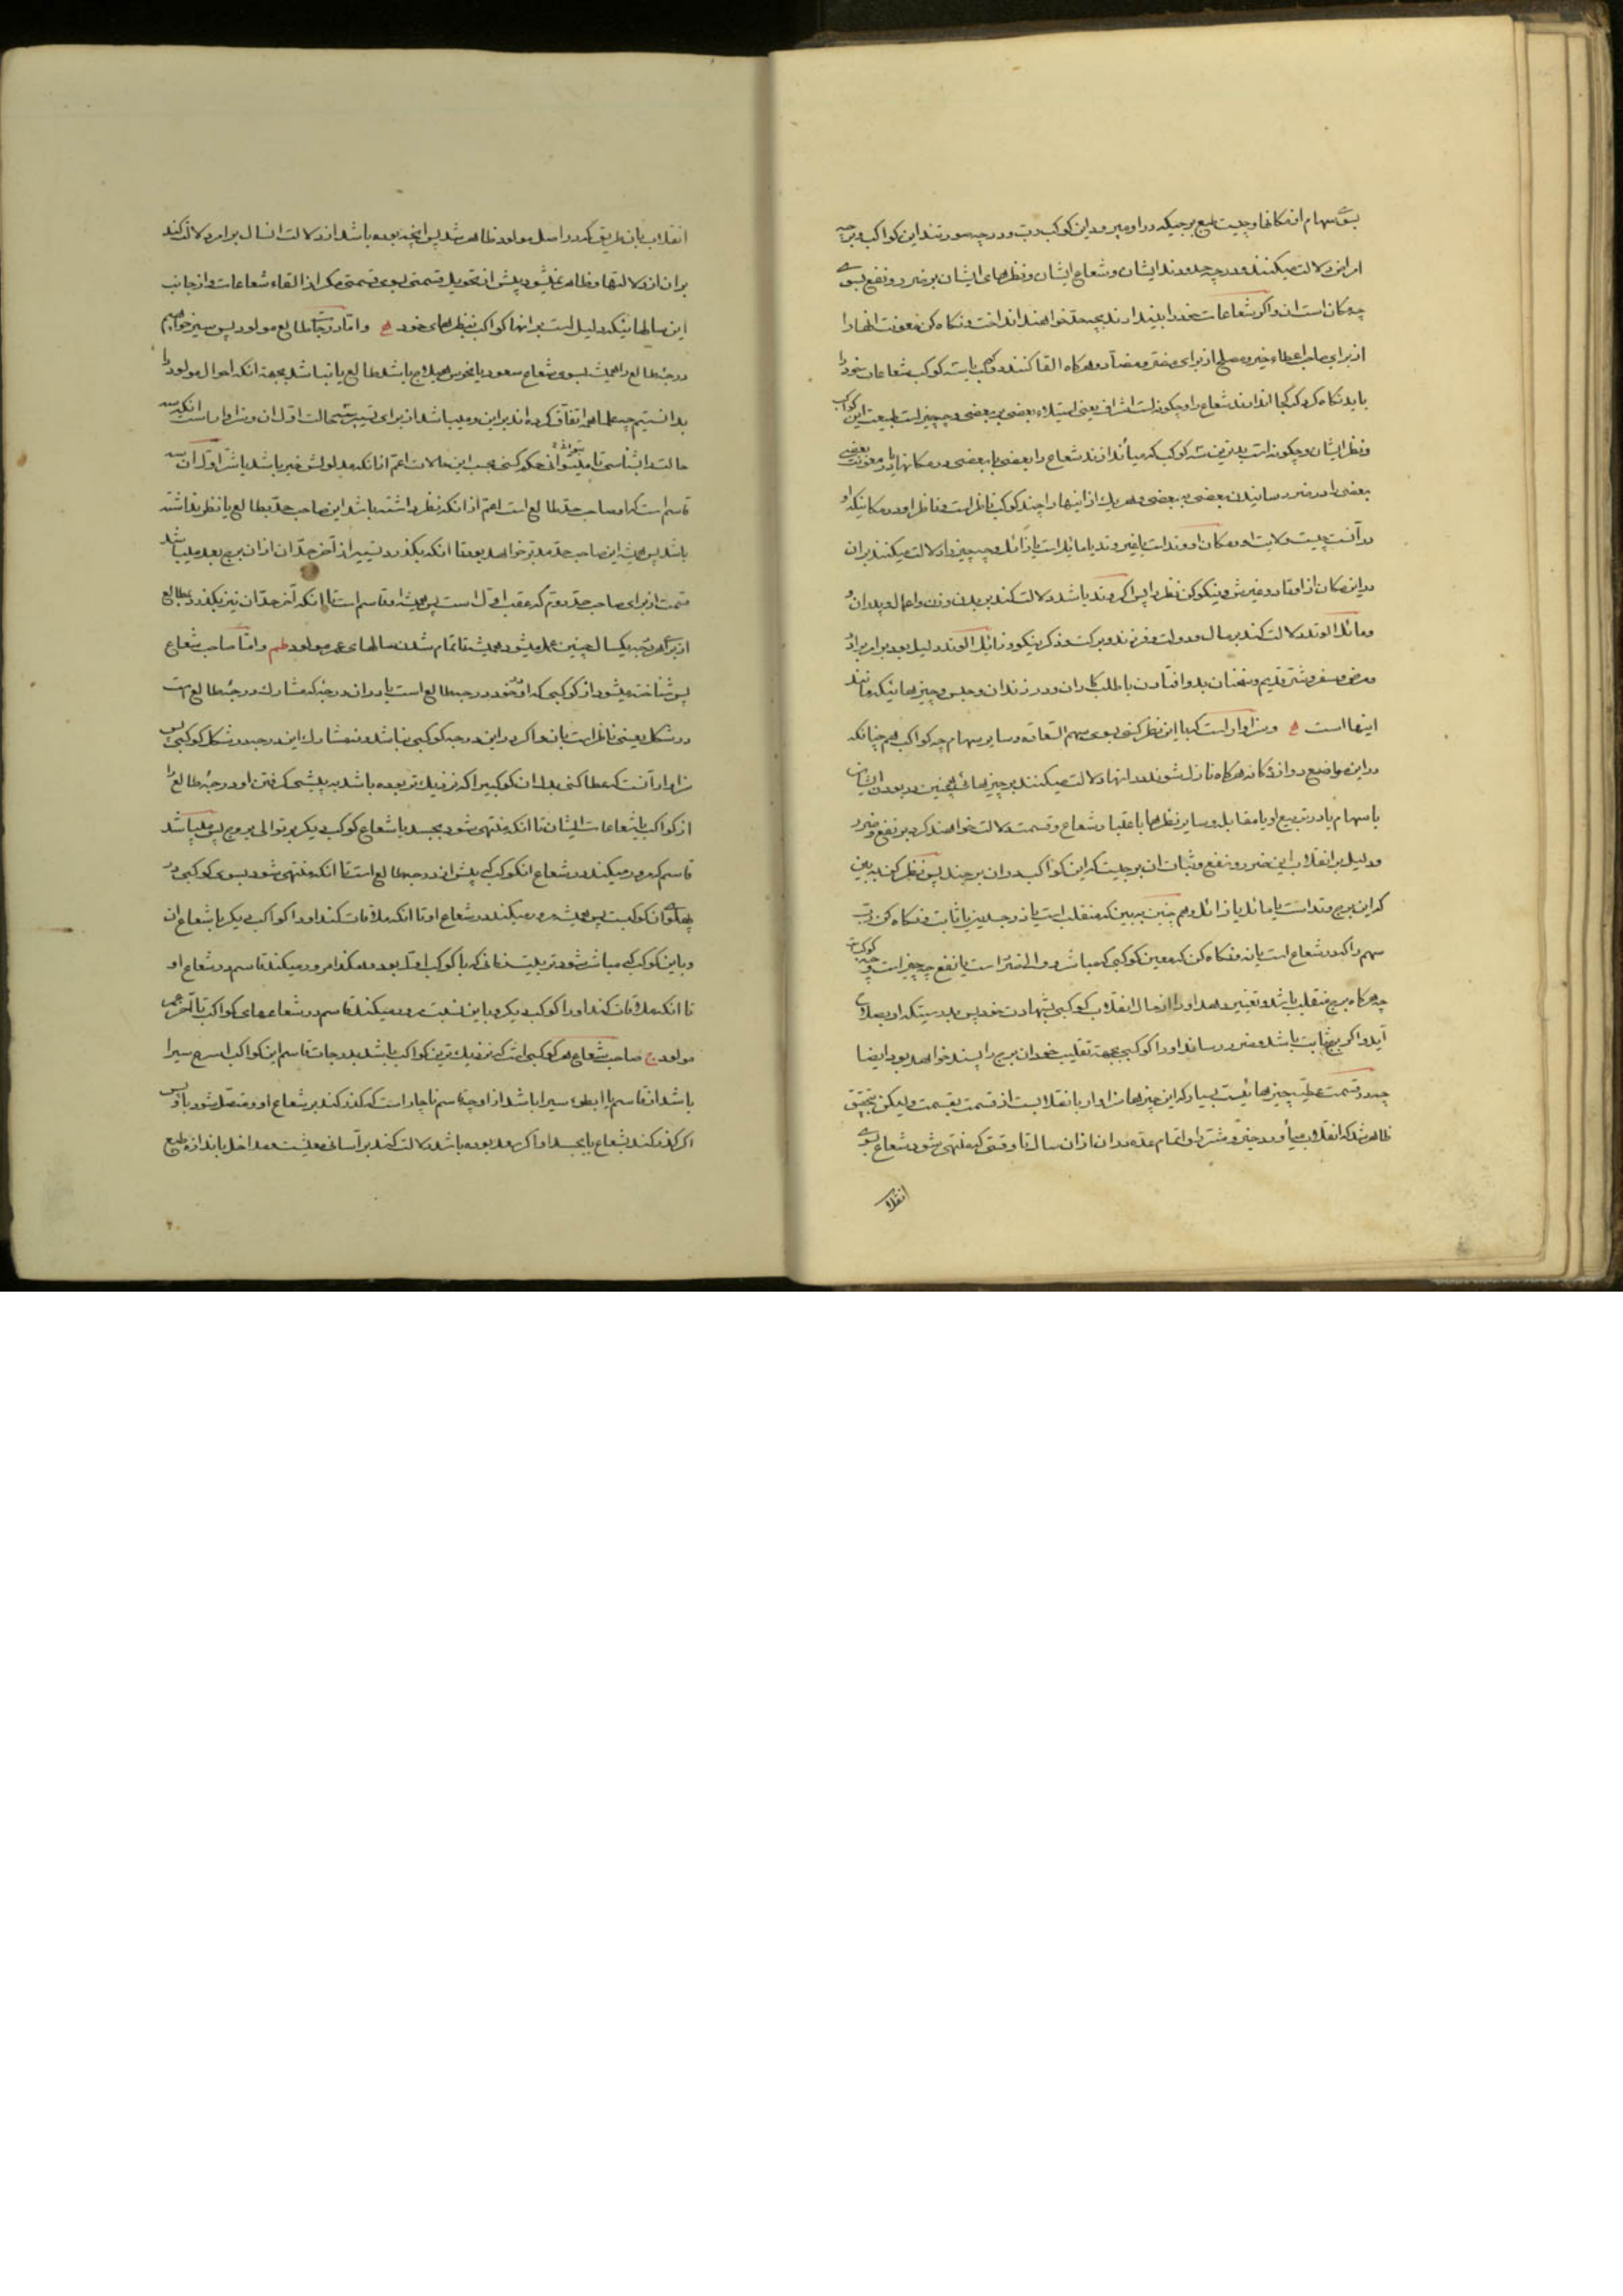 بسوی سهام از مکانها و چیست طبع برجیکه در او میرود این کوکب و در چه صورتند این کواکب و بر چه
امر از دلالت میکنند و در چه حدودند ایشان و شعاع ایشان و نظرهای ایشان بر ضرر و نفع بسوی
چه مکان است ان و اکر شعاعات خود را بیندازند بچه حد خواهند انداخت و نکاه کن معونت انها را
از برای صاحب اعطاء خیر و صلح از برای مضرت و مضاد و هرکاه القا کنند کوکب شعاعات خود را
باید نکاه کرد که کجا اندازند شعاع را و چکونه است اشراف یعنی استیلاء بعضی بر بعضی و چه چیز است طبیعت این کواکب
و نظر ایشان و چکونه است بدترین کوکب که میاندازند شعاع را بعضی با بعضی در مکانها یا در معونت بعضی
بعضی را در ضرر رسانیدن بعضی به بعضی و هر یک از اینها را چند کوکب ناظر است و ناظر او در مکانیکه او
در آنست چیست ولایت او در مکان او وتد است یا غیر وتد یا مائل است یا زائل و چه چیز را دلالت میکنند بر ان
در این مکان از اوتاد و غیرش و نیکو کن نظر را پس اکر در وتد باشد دلالت کند بر بدن و زن و اعمال و پدران و
و مائل الوتد دلالت کند بر مال و دولت و فرزند و برکت و ذکر نیکو و زائل الوتد دلیل بود بر امر برادر
و مرض و سفر و شر قدیم و سخنان بد و افتادن با طلب کاران و دزدان و حبس و چیزهائیکه مانند
اینها است و سزاوار است که با این نظر کنی بسوی سهم السعاده و سایر سهام چه کواکب هم چنانکه
در این مواضع دوازده کانه هرکاه نازل شوند در انها دلالت میکنند بر چیزهائی همچنین در بودن ایشان
با سهام یا در تربیع او یا مقابله و سایر نظرها باعتبار شعاع و قسمت دلالت خواهند کرد بر نفع و ضرر
و دلیل بر انقلاب این ضرر و نفع و ثبات ان برجیست که این کواکب در ان برجند پس نظر کن به بین
که این برج وتد است یا مائل یا زائل و هم چنین به بین که منقلب است یا ذو جسدین یا ثابت و نکاه کن رب
سهم را که در شعاع است یا نه و نکاه کن که معین کوکبی که مباشر و والی ضرر است یا نفع چه چیز است
چه هرکاه برج منقلب باشد و تغییر دهد او را از حال انقلاب کوکبی بشهادت خود پس بدرستیکه او بصلاح
آید و اکر برج ثابت باشد و ضرر رساند او را کوکبی بجهة تقلیب خود ان برج را پسند خواهد بود ایضا
چه در قسمت عطیه چیزهائیست بسیار که این چیزها سزاوار بانقلابست از قسمت بقسمت و لیکن بتحقیق
ظاهر شد که انقلاب میآورد خیر و شر را و اتمام مدد ان از ان سال تا وقتی که منتهی شود شعاع بسوی
انقلاب
انقلاب بان طریق که در اصل مولود ظاهر شد پس آنچه بوده باشد از دلالت انسال بر امری دلالت کند
بر ان از دلالتها و ظاهر نمیشود پیش از تحویل قسمتی بسوی قسمتی مکر از القاء شعاعات و از جانب
این سالهائیکه دلیل است بر انها کواکب بنظرهای خود و اما در درجات طالع مولود پس سیر خواهیم
درجهٔ طالع را همیشه بسوی شعاع سعود یا نحوس هیلاج باشد طالع یا نباشد بجهة انکه احوال مولود را
بدانستیم چه علما همه اتفاق کرده اند بر این و میباشد از برای تسییرش حالت اول ان و سزاوار است انکه
حالت را بشناسی تا میتوانی حکم کنی بحسب این حالات اعم از انکه مدلولش خیر باشد یا شر اول ان
قاسم است که او صاحب حد طالع است اعم از انکه نظر داشته باشد این صاحب حد بطالع یا نظر نداشته
باشد پس همیشه این صاحب حد مدبر خواهد بود تا انکه بکذرد تسییر از آخر حد ان از ان برج بعد میباشد
قسمت از برای صاحب حد دوم که عقب اول است پس همیشه او قاسم است تا انکه آخر حد ان نیز بکذرد بطالع
از برای هر درجه یکسال چنین عمل میشود همیشه تا تمام شدن سالهای عمر مولود و اما صاحب شعاع
پس شناخته میشود از کوکبی که او خود در درجه طالع است یا در ان درجه که مشارک درجهٔ طالع است
در شکل یعنی ناظر است بان و اکر در این درجه کوکبی نباشد و نه مشارک این درجه در شکل کوکبی پس
سزاوار آنست که عطا کنی بدل ان کوکبیرا که نزدیک تر بوده باشد به پیشی کرفتن او درجهٔ طالع را
از کواکب یا شعاعات ایشان تا انکه منتهی شود بجسد یا شعاع کوکب دیکر بر توالی بروج پس میباشد
قاسم که مرور میکند در شعاع انکوکب که پیش از درجه طالع است تا انکه منتهی شود بسوی کوکبی در
پهلوی ان کوکبست پس همیشه مرور میکند در شعاع او تا انکه ملاقات کند او را کواکب دیکر یا شعاع ان
و با این کوکب که مباشر شود تربیت زمانی که با کوکب اول بوده هکذا مرور میکند قاسم در شعاع او
تا انکه ملاقات کند او را کوکب دیکر و باین نسبت مرور میکند قاسم در شعاعهای کواکب تا آخر عمر
مولود صاحب شعاع هر کوکبی است که نزدیک ترین کواکب باشد بدرجات قاسم این کواکب اسرع سیرا
باشد از قاسم یا ابطیء سیرا باشد از او چه قاسم ناچار است که کذر کند بر شعاع او و متصل شود باو پس
اکر کذر کند بشعاع یا بجسد او اکر سعد بوده باشد دلالت کند بر آسانی معیشت و مداخل باندازه طبع